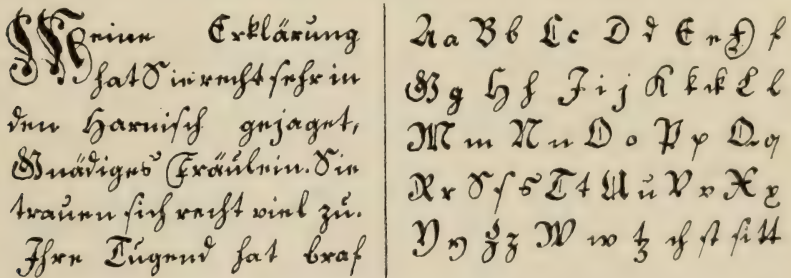 Meine Erklärung
hat Sie recht ſehr in
den Harniſch gejaget,
Gnädiges Fräulein. Sie
trauen ſich recht viel zu.
Ihre Tugend hat braf
A a B b C c D d E e F f
G g H h J i j K k ck L l
M m N n O o P p Q q
R r S ſ s T t U u V v X x
Y y Z z W w tz ch ſt ſi tt